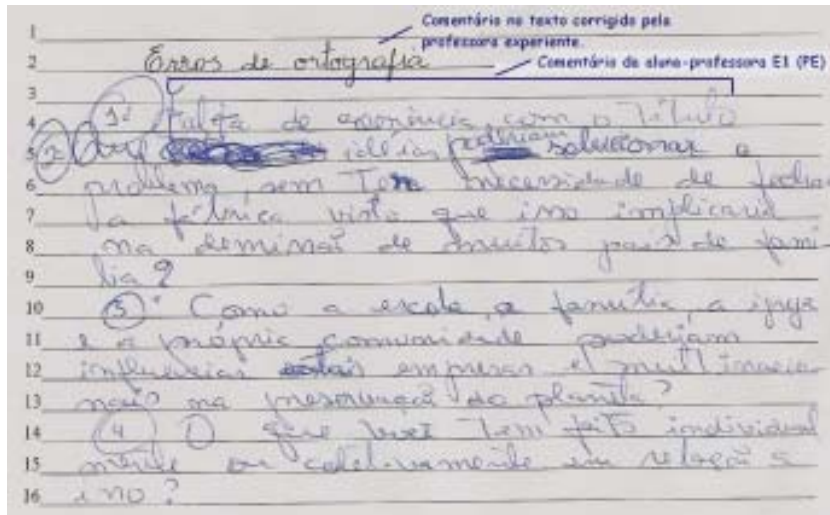 Comentário no texto corrigido pela
professora experiente.
Comentário da aluna-professora E1 (PE)
1
2 Erros de ortografia
3
4 1º Falta de coerência com o título
5 2 Que idéias poderiam solucionar o
6 problema, sem ter necessidade de fechar
7 a fábrica visto que isso implicaria
8 na demissão de muitos pais de famí-
9 lia?
10 3 Como a escola, a família, a igreja
11 e a própria comunidade poderiam
12 influenciar empresas e multinacio-
13 nais na preservação do planeta?
14 4 O que você tem feito individual
15 mente ou coletivamente em relação a
16 isso?